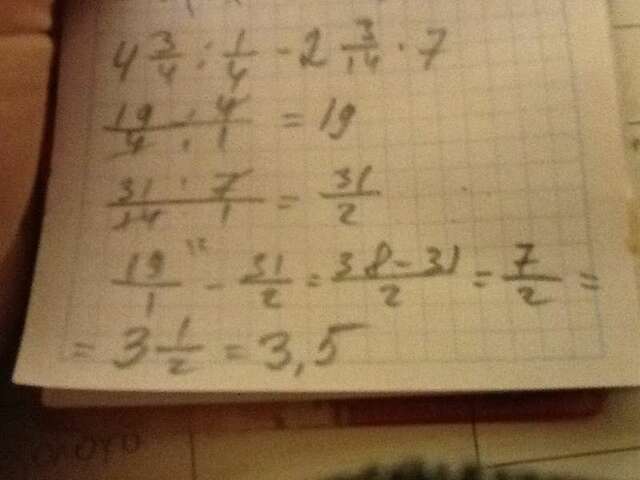 4 3/4 : 1/4 - 2 3/14 · 7
19 · 4 / 4 · 1 = 19
31 · 7 / 14 · 1 = 31/2
19/1 - 31/2 = 38-31/2 = 7/2 =
= 3 1/2 = 3,5